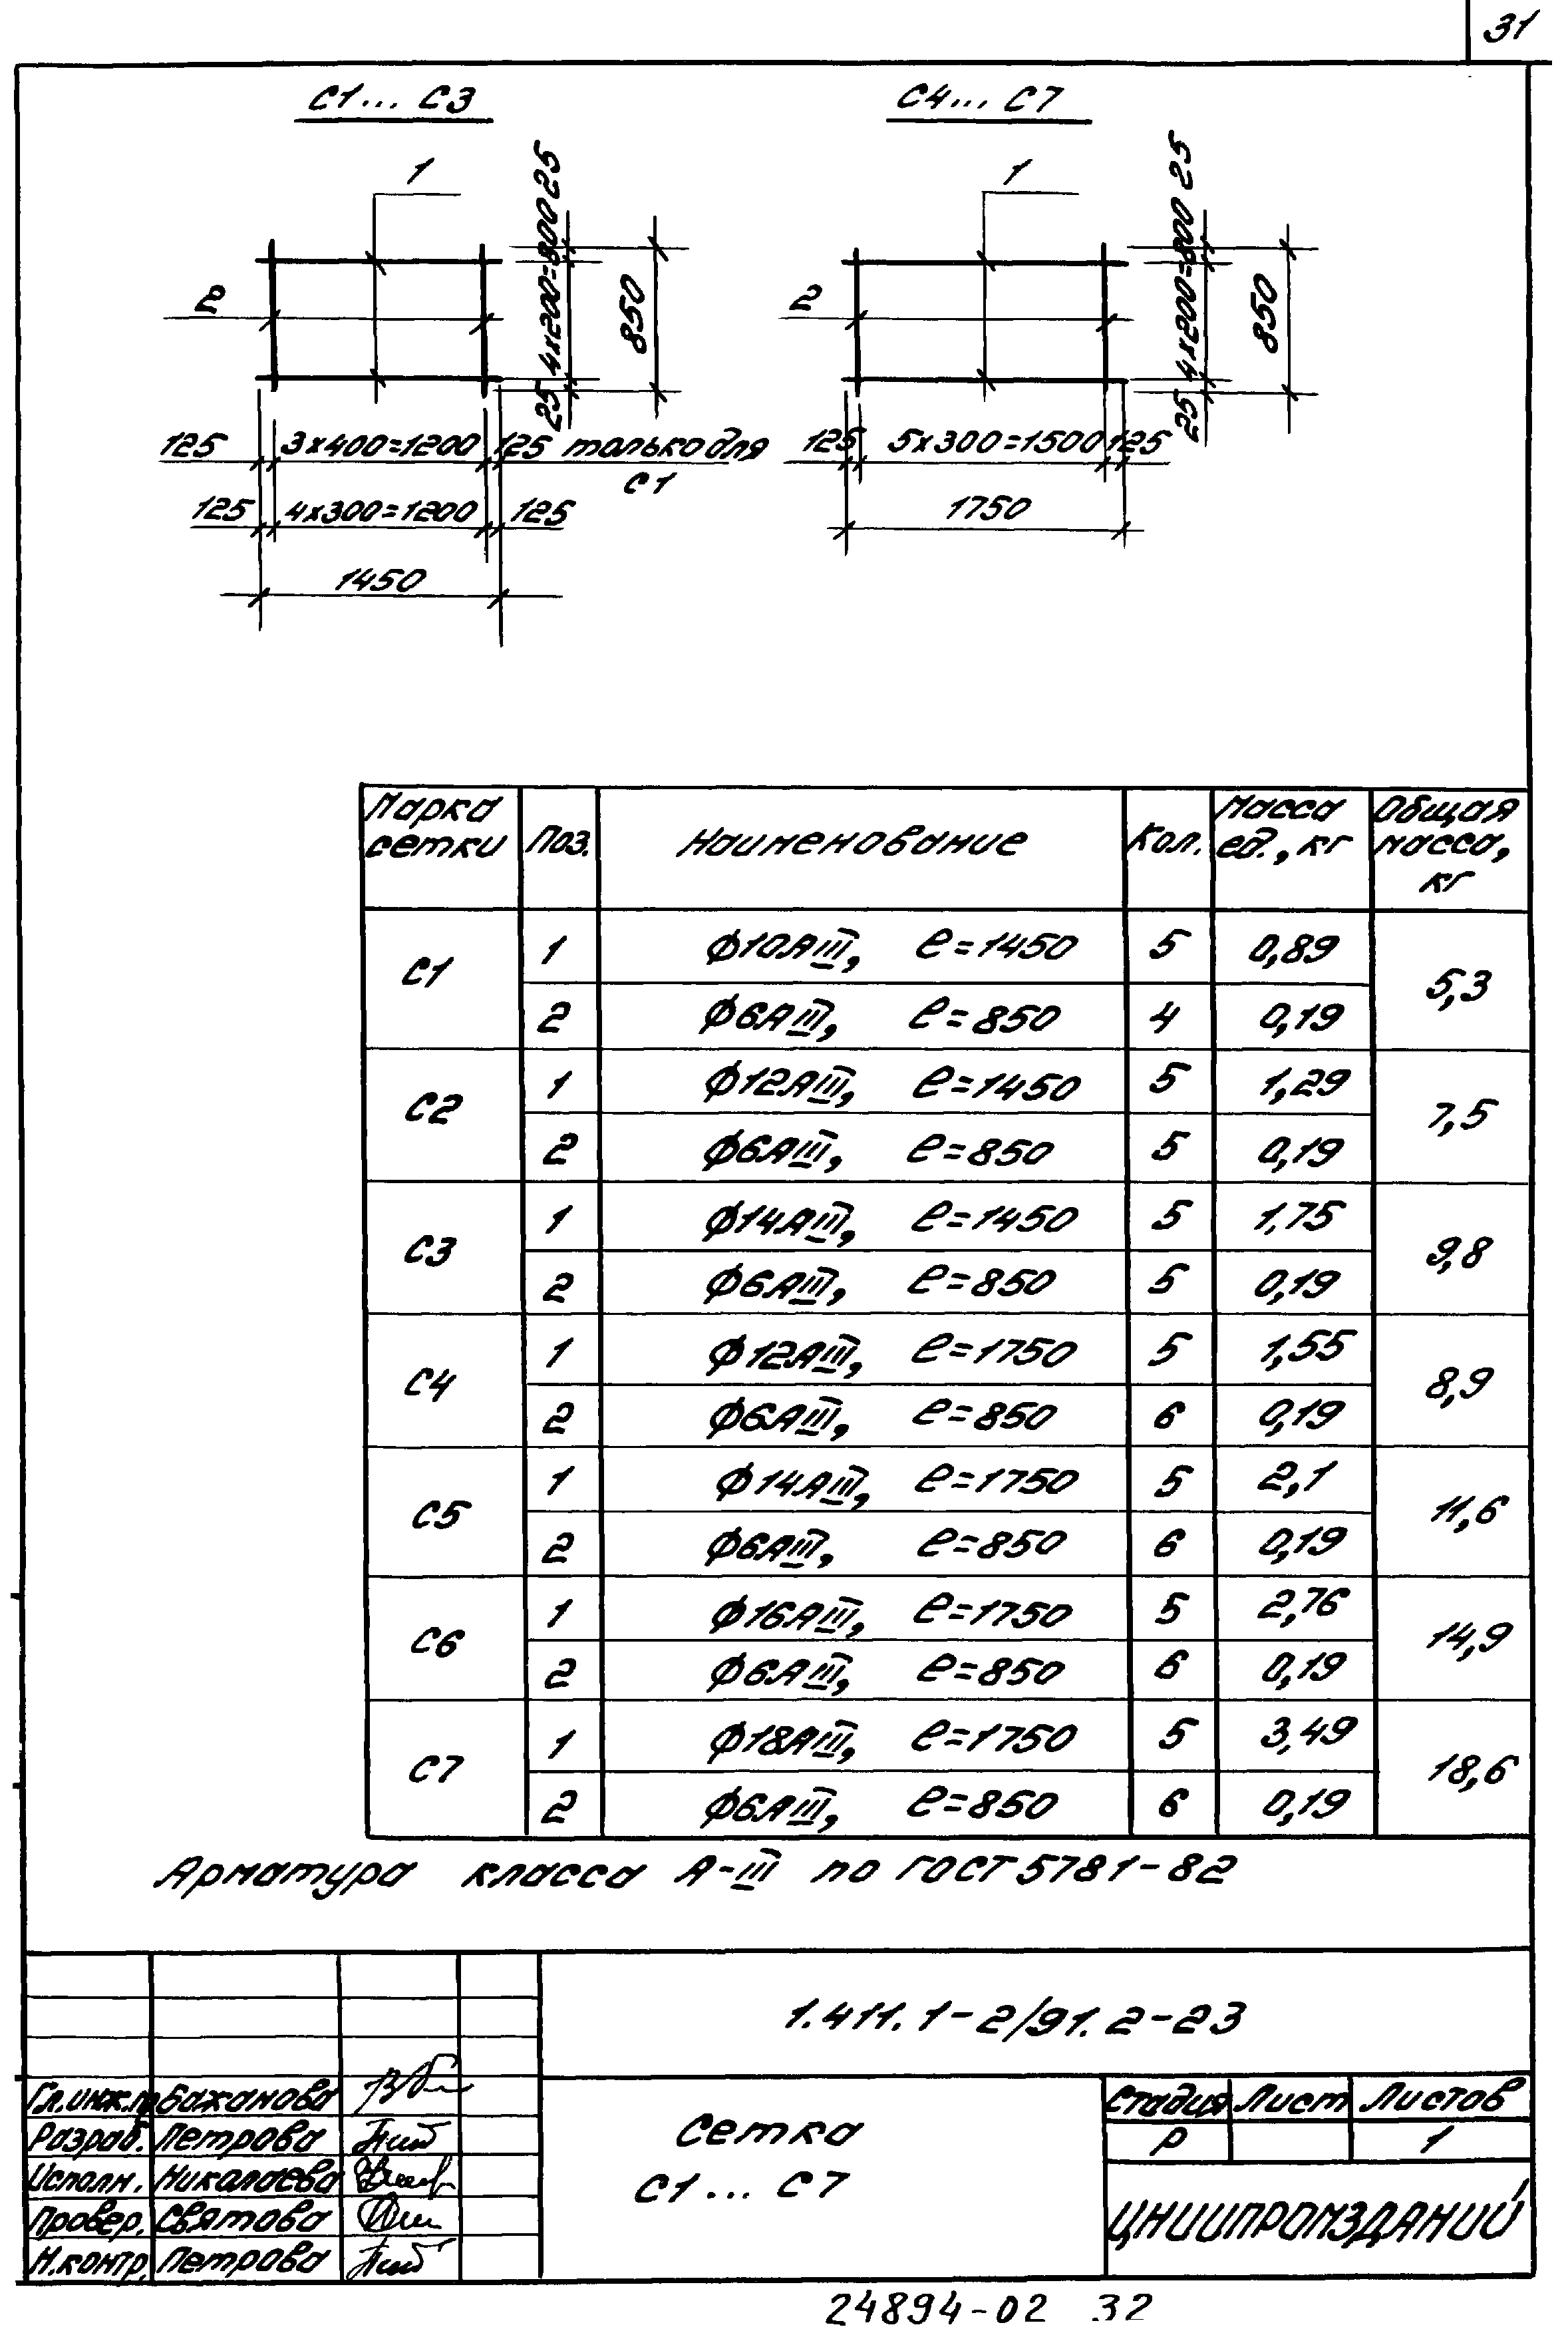 31
С1... С3
С4... С7
1
2
25 4х200=800 25
850
125 3х400=1200 125 только для
С1
125 4х300=1200 125
1450
1
2
25 4х200=800 25
850
125 5х300=1500 125
1750
Марка сетки Поз. Наименование Кол. Масса ед., кг Общая масса, кг
С1 1 ф10АIII, ℓ=1450 5 0,89 5,3
2 ф6АIII, ℓ=850 4 0,19
С2 1 ф12АIII, ℓ=1450 5 1,29 7,5
2 ф6АIII, ℓ=850 5 0,19
С3 1 ф14АIII, ℓ=1450 5 1,75 9,8
2 ф6АIII, ℓ=850 5 0,19
С4 1 ф12АIII, ℓ=1750 5 1,55 8,9
2 ф6АIII, ℓ=850 6 0,19
С5 1 ф14АIII, ℓ=1750 5 2,1 11,6
2 ф6АIII, ℓ=850 6 0,19
С6 1 ф16АIII, ℓ=1750 5 2,76 14,9
2 ф6АIII, ℓ=850 6 0,19
С7 1 ф18АIII, ℓ=1750 5 3,49 18,6
2 ф6АIII, ℓ=850 6 0,19
Арматура класса А-III по ГОСТ 5781-82
1.411.1-2/91.2-23
Гл.инж.п Бажанова
Разраб. Петрова
Исполн. Николаева
Провер. Святова
Н.контр. Петрова
Сетка
С1... С7
Стадия Лист Листов
Р 1
ЦНИИПРОМЗДАНИЙ
24894-02 32